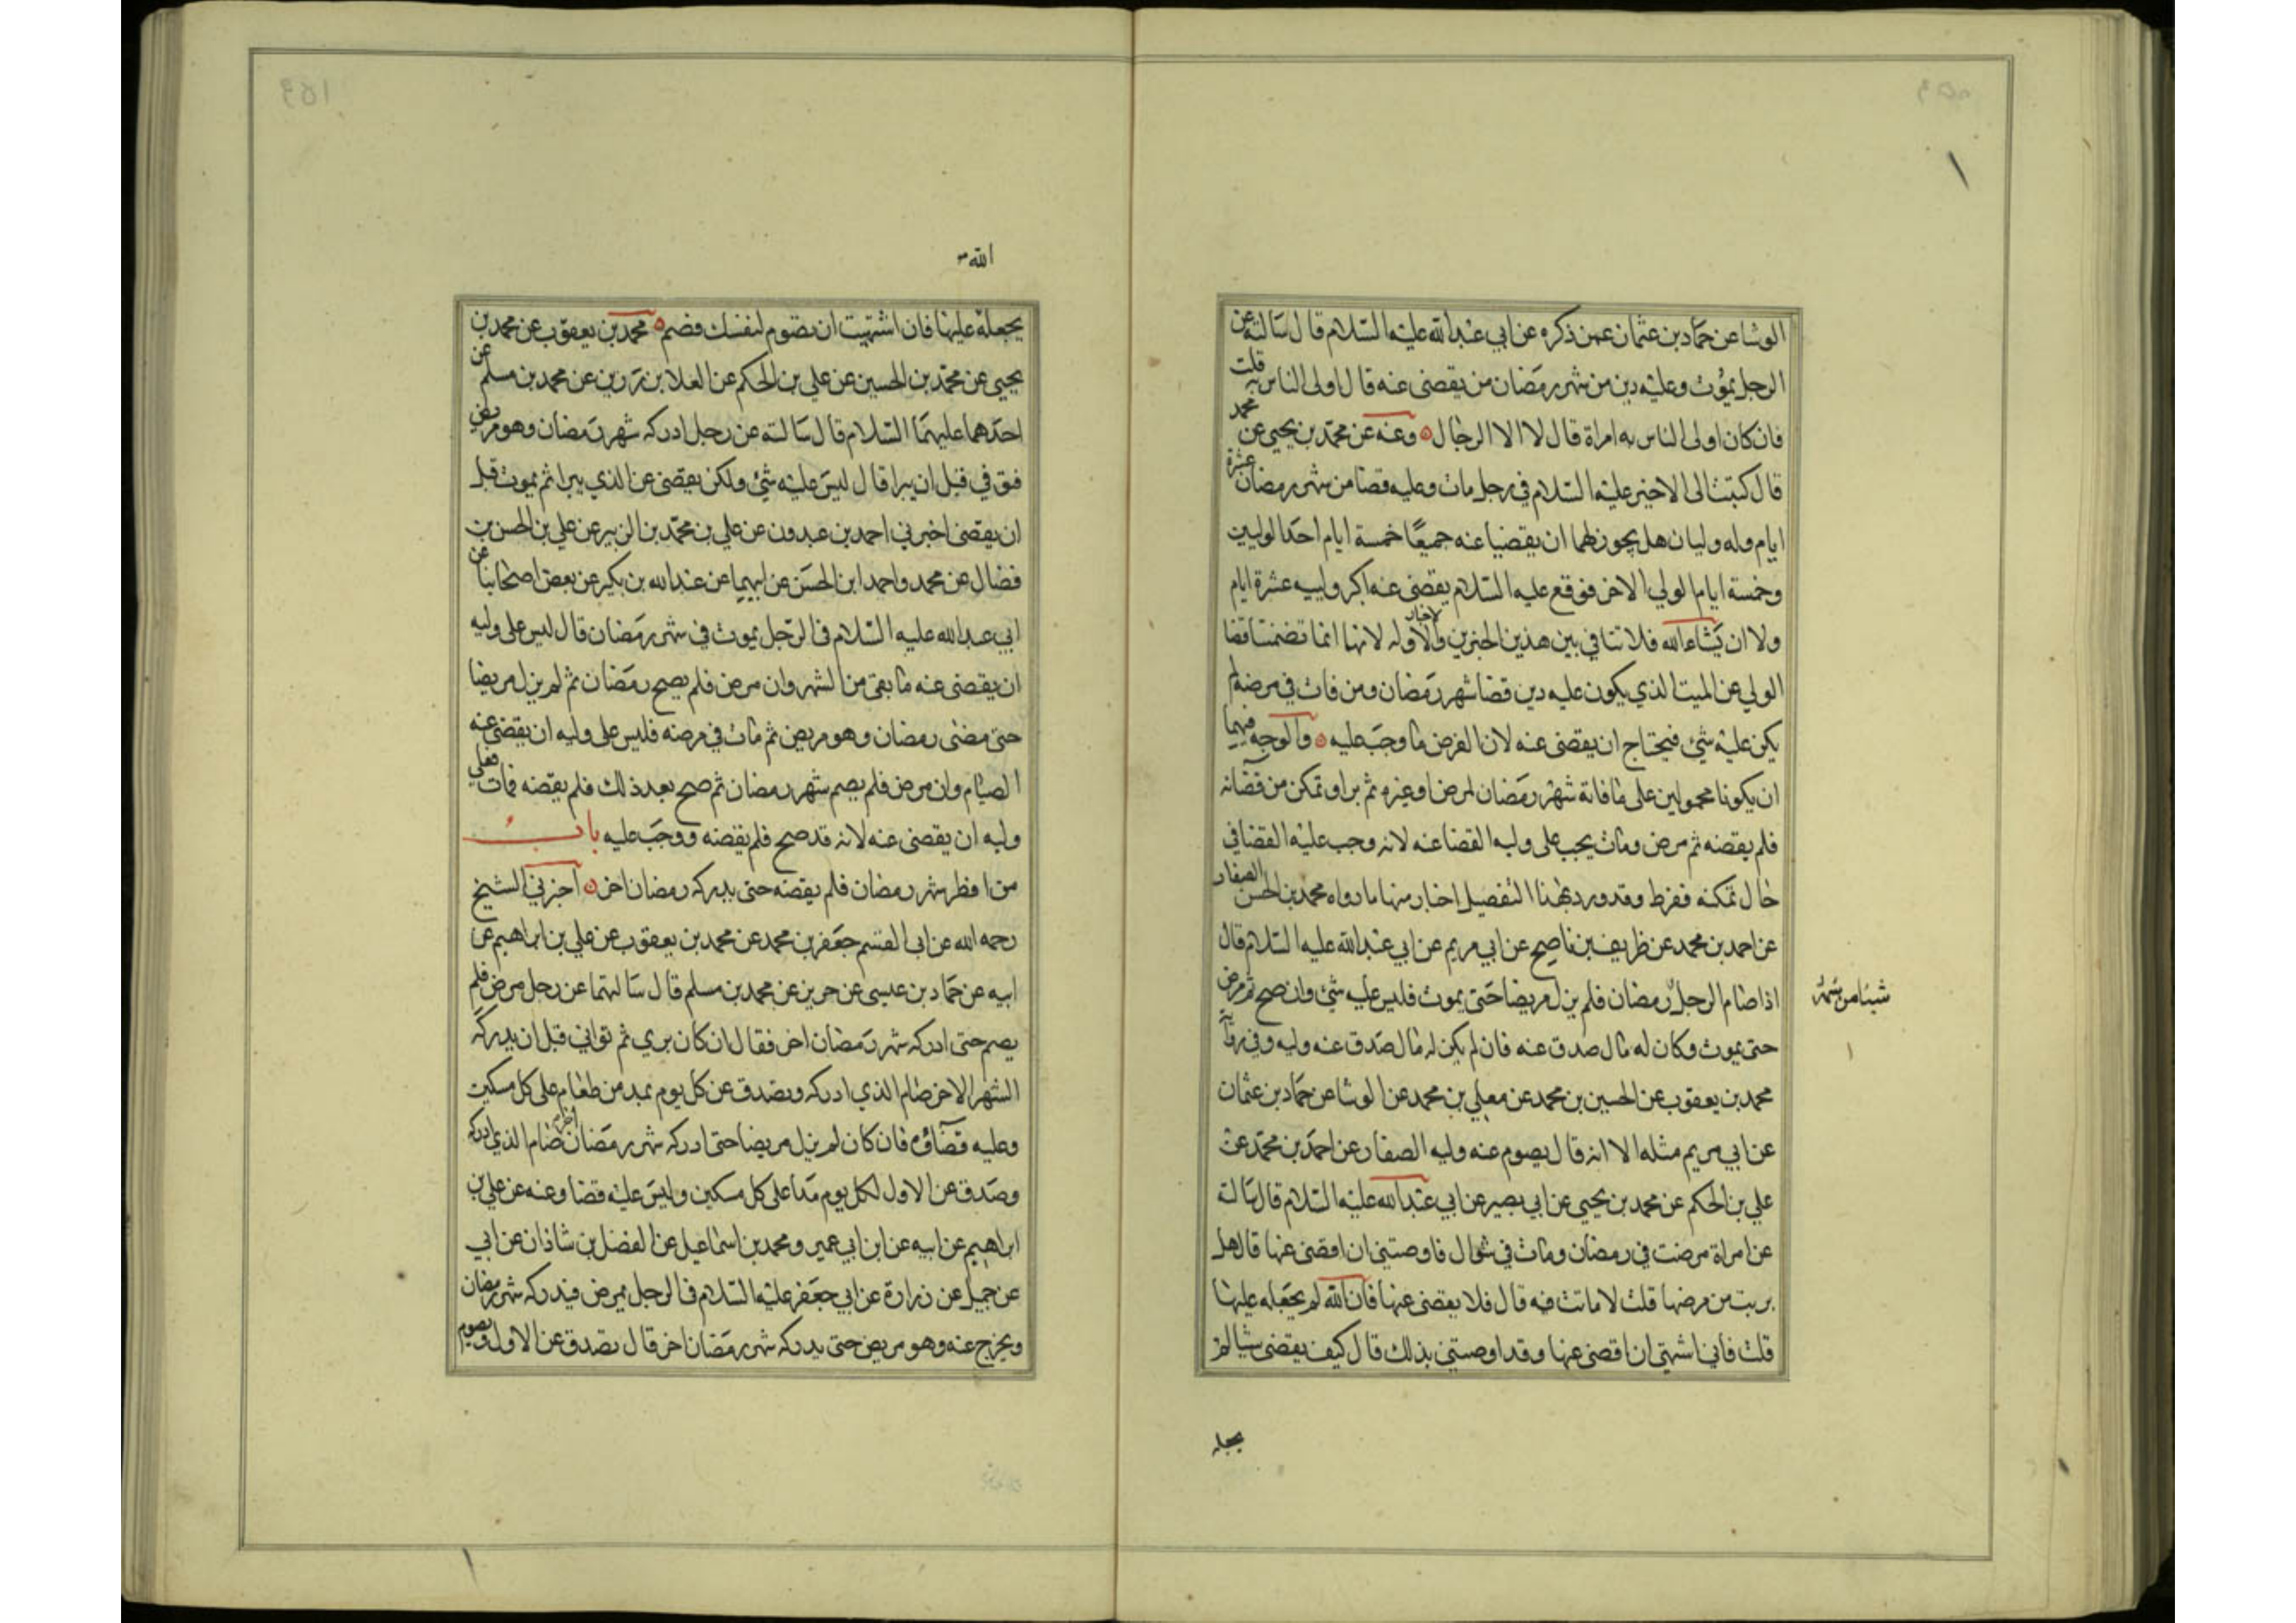 الوشا عن حماد بن عثمان عمن ذكره عن ابي عبد الله عليه السلام قال سالته عن
الرجل يموت وعليه دين من شهر رمضان من يقضى عنه قال اولى الناس به قلت
فان كان اولى الناس به امراة قال لا الا الرجال وعنه عن محمد بن يحيى عن محمد
قال كتبت الى الاخير عليه السلام في رجل مات وعليه قضا من شهر رمضان عشرة
ايام وله وليان هل يجوز لهما ان يقضيا عنه جميعا خمسة ايام احد الوليين
وخمسة ايام الولي الاخر فوقع عليه السلام يقضى عنه اكبر ولييه عشرة ايام
ولا ان يشاء الله فلا تنافي بين هذين الخبرين والاخبار الاوله لانها انما تضمنت قضا
الولي عن الميت الذي يكون عليه دين قضا شهر رمضان ومن فات في مرضه لم
يكن عليه شئ فيحتاج ان يقضى عنه لان الفرض ما وجب عليه والوجه فيهما
ان يكونا محمولين على ما فاته شهر رمضان لمرض او غيره ثم برا وتمكن من قضائه
فلم يقضه ثم مرض ومات يجب على وليه القضا عنه لانه وجب عليه القضا في
حال تمكنه ففرط وقد ورد بهذا التفصيل اخبار منها ما رواه محمد بن الحسن الصفار
عن احمد بن محمد عن ظريف بن ناصح عن ابي مريم عن ابي عبد الله عليه السلام قال
اذا صام الرجل رمضان فلم يزل مريضا حتى يموت فليس عليه شئ وان صح ثم مرض
شيئا من شهر
حتى يموت وكان له مال صدق عنه فان لم يكن له مال صدق عنه وليه وفي رواية
محمد بن يعقوب عن الحسين بن محمد عن معلي بن محمد عن الوشا عن حماد بن عثمان
عن ابي مريم مثله الا انه قال يصوم عنه وليه الصفار عن احمد بن محمد عن
علي بن الحكم عن محمد بن يحيى عن ابي بصير عن ابي عبد الله عليه السلام قال سالته
عن امراة مرضت في رمضان وماتت في شوال فاوصتني ان اقضى عنها قال هل
بريت من مرضها قلت لا ماتت فيه قال فلا يقضى عنها فان الله لم يجعله عليها
قلت فاني اشتهي ان اقضى عنها وقد اوصتني بذلك قال كيف يقضى شيا لم
يجعله
الله
يجعله عليها فان اشتهيت ان تصوم لنفسك فصم محمد بن يعقوب عن محمد بن
يحيى عن محمد بن الحسين عن علي بن الحكم عن العلا بن رزين عن محمد بن مسلم عن
احدهما عليهما السلام قال سالته عن رجل ادركه شهر رمضان وهو مريض
فتوفي قبل ان يبرا قال ليس عليه شئ ولكن يقضى عن الذي يبرا ثم يموت قبل
ان يقضى اخبرني احمد بن عبدون عن علي بن محمد بن الزبير عن علي بن الحسن بن
فضال عن محمد واحمد ابن الحسن عن ابيهما عن عبد الله بن بكير عن بعض اصحابنا عن
ابي عبد الله عليه السلام في الرجل يموت في شهر رمضان قال ليس على وليه
ان يقضى عنه ما بقى من الشهر وان مرض فلم يصح رمضان ثم لم يزل مريضا
حتى مضى رمضان وهو مريض ثم مات في مرضه فليس على وليه ان يقضى عنه
الصيام وان مرض فلم يصم شهر رمضان ثم صح بعد ذلك فلم يقضه فمات فعلي
وليه ان يقضى عنه لانه قد صح فلم يقضه ووجب عليه باب
من افطر شهر رمضان فلم يقضه حتى يدركه رمضان اخر اخبرني الشيخ
رحمه الله عن ابي القسم جعفر بن محمد عن محمد بن يعقوب عن علي بن ابراهيم عن
ابيه عن حماد بن عيسى عن حريز عن محمد بن مسلم قال سالتهما عن رجل مرض فلم
يصم حتى ادركه شهر رمضان اخر فقال ان كان بري ثم تواني قبل ان يدركه
الشهر الاخر صام الذي ادركه وتصدق عن كل يوم بمد من طعام على كل مسكين
وعليه قضاؤه فان كان لم يزل مريضا حتى ادركه شهر رمضان اخر صام الذي ادركه
وصدق عن الاول لكل يوم مدا على كل مسكين وليس عليه قضا وعنه عن علي بن
ابراهيم عن ابيه عن ابن ابي عمير ومحمد بن اسماعيل عن الفضل بن شاذان عن ابي
عن جميل عن زرارة عن ابي جعفر عليه السلام في الرجل يمرض فيدركه شهر رمضان
ويخرج عنه وهو مريض حتى يدركه شهر رمضان اخر قال تصدق عن الاول ويصوم